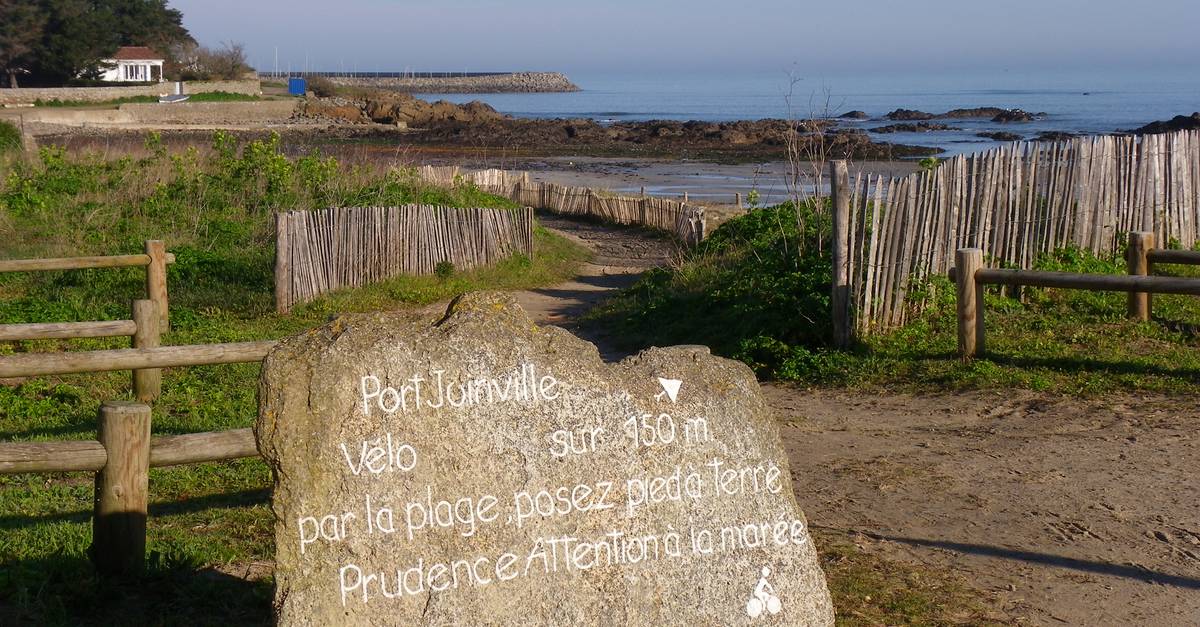 Port Joinville
Vélo sur 150 m
par la plage, posez pied à terre
Prudence Attention à la marée